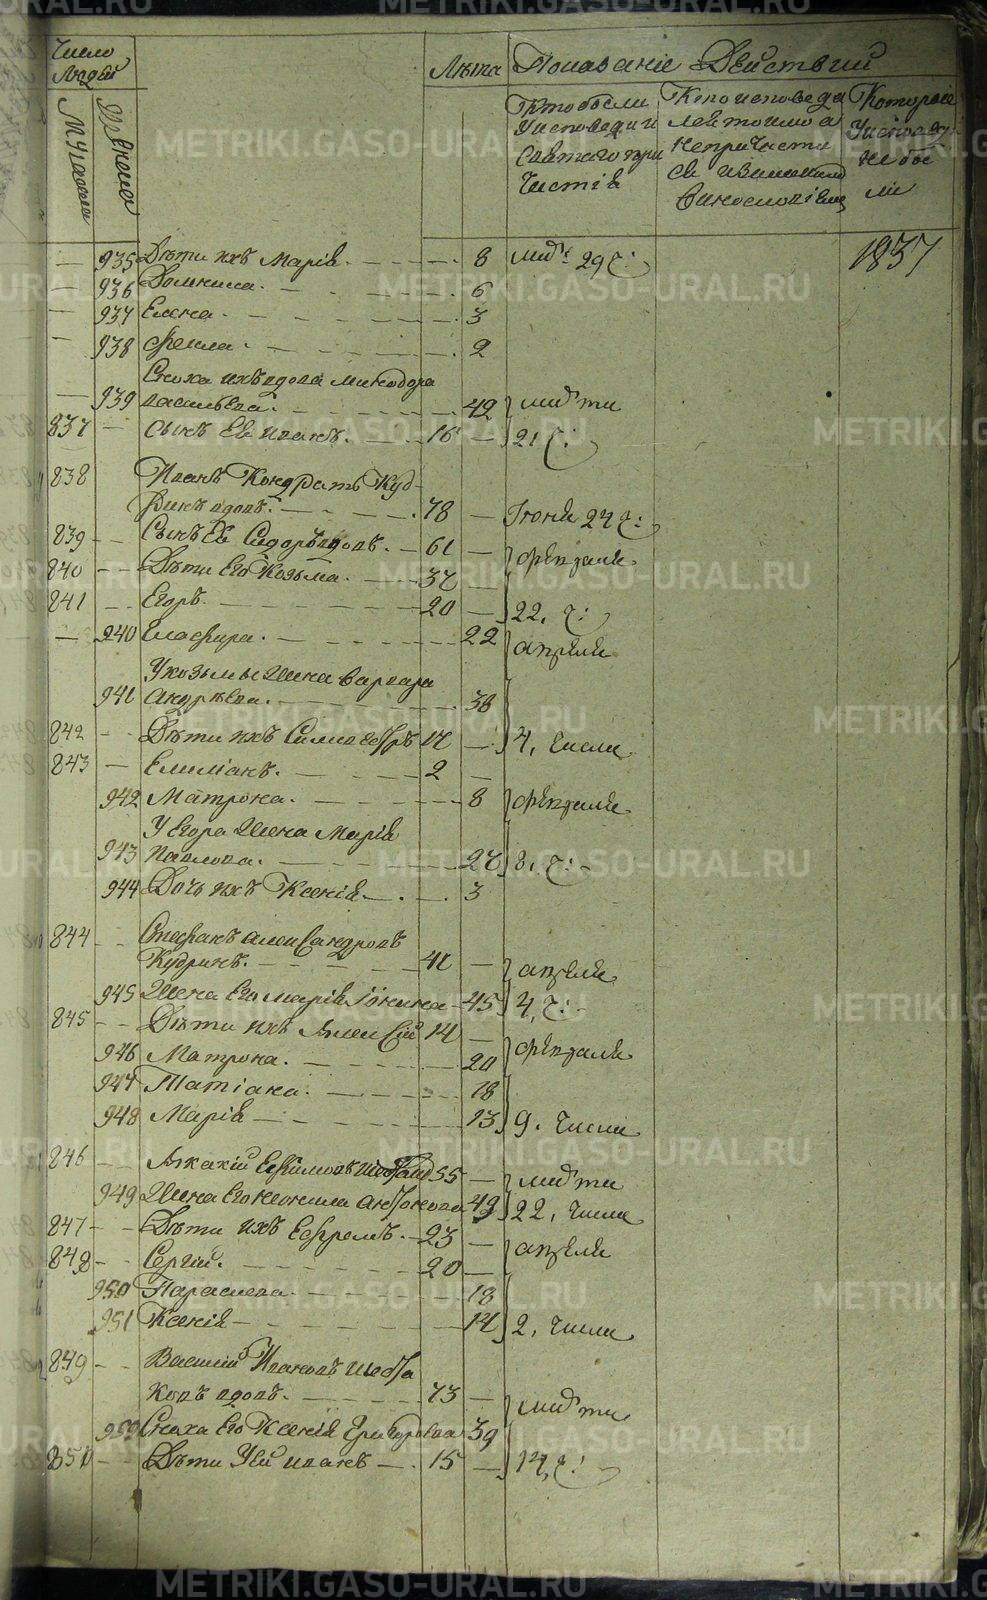 Число Людей
Мужска
Женска
Лѣта
Показаніе Действий
Кто были
Уисповеди и
Святаго при
Частія
Кто исповеда
лся токмо а
непричасти
ся
Которые
Уисповеди
небы
ли
1837
— 935 Дѣти ихъ Марія. 8 29 ч:
— 936 Домника. 6
— 937 Елена. 3
— 938 Фекла. 2
Сноха ихъ вдова Минодора
— 939 васильева. 42 марти
837 — сынъ Ее иванъ. 16 — 21 ч:
838 Иванъ Кондратъ Куд-
ринъ вдовъ. 78 — Іюня 24 ч:
839 Сынъ Ево Сидоръ вдовъ. 61 — февраля
840 Дѣти Его Козьма. 37 —
841 Егоръ. 20 — 22, ч:
— 940 Глафира. 22 апреля
У козьмы Жена варвара
941 Андрѣева. 38
842 Дѣти ихъ 14 — 4, числа
843 — Емиліанъ. 2 —
942 Матрона. 8 февраля
У Егора Жена Марія
943 Павлова. 27 8, ч:
944 Дочь ихъ Ксенія 3
844 Стефанъ александровъ
Кудринъ. 41 — апреля
945 Жена Его Марія 45 4, ч:
845 Дѣти ихъ Алексій 14 — февраля
946 Матрона. 20
947 Татіана. 18
948 Марія 13 9. числа
846 Акакій Ефимовъ 55 — марти
949 Жена Его неонила 49 22, числа
847 Дѣти ихъ Ефремъ. 23 — апреля
848 Сергій. 20 —
950 Параскева. 18
951 Ксенія 14 2, числа
849 Василій Ивановъ
ковъ вдовъ. 73 — марти
952 Сноха Его Ксенія Григорьева 39
850 Дѣти Уей иванъ 15 — 14, ч:
METRIKI.GASO-URAL.RU